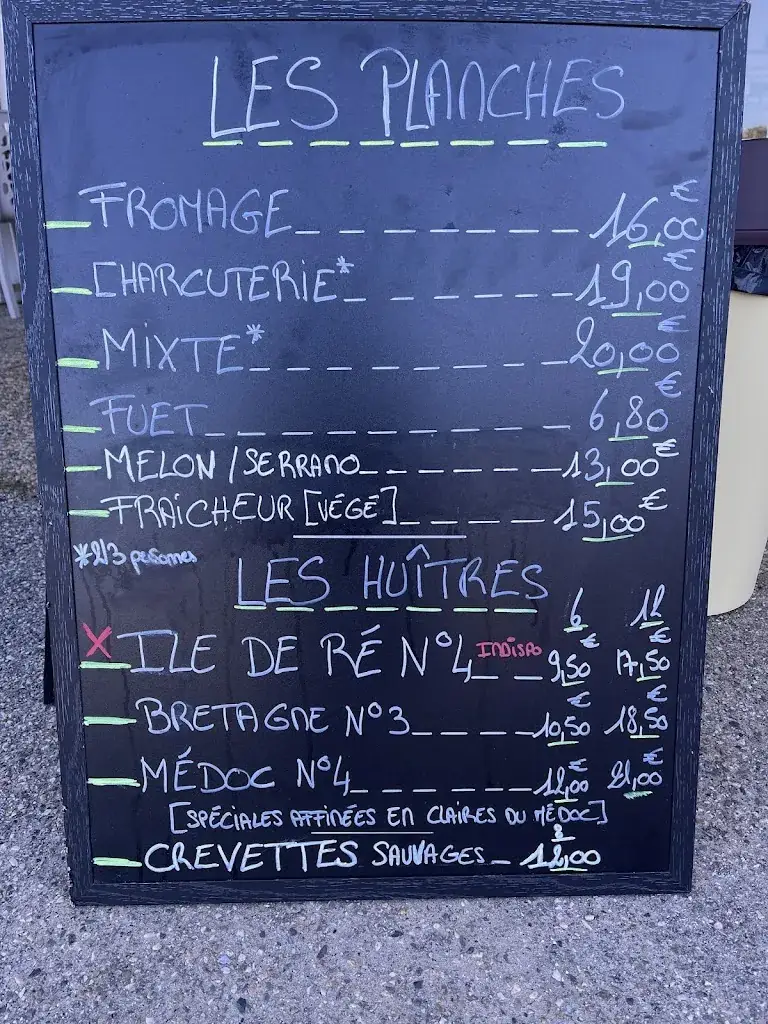 LES PLANCHES
FROMAGE 16,00 €
CHARCUTERIE* 19,00 €
MIXTE* 20,00 €
FUET 6,80 €
MELON / SERRANO 13,00 €
FRAÎCHEUR [VÉGÉ] 15,00 €
*2/3 personnes
LES HUÎTRES
6 12
X ILE DE RÉ N°4 INDISPO 9,50 € 17,50 €
BRETAGNE N°3 10,50 € 18,50 €
MÉDOC N°4 12,00 € 21,00 €
[SPÉCIALES AFFINÉES EN CLAIRES DU MÉDOC]
8
CREVETTES SAUVAGES 12,00